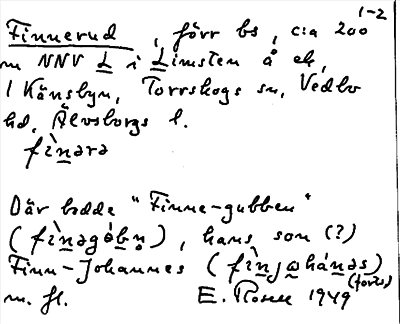 1-2
Finnerud, förr bs, c:a 200
m NNV L i Limsten å ek,
1 Känsbyn, Torrskogs sn, Vedbo
hd, Älvsborgs l.
fìnərə
Där bodde "Finne-gubben"
(fìnəgóbn̥), hans son (?)
Finn-Johannes (fìnjωhánəs)
(forts)
m. fl. E. Rosell 1949